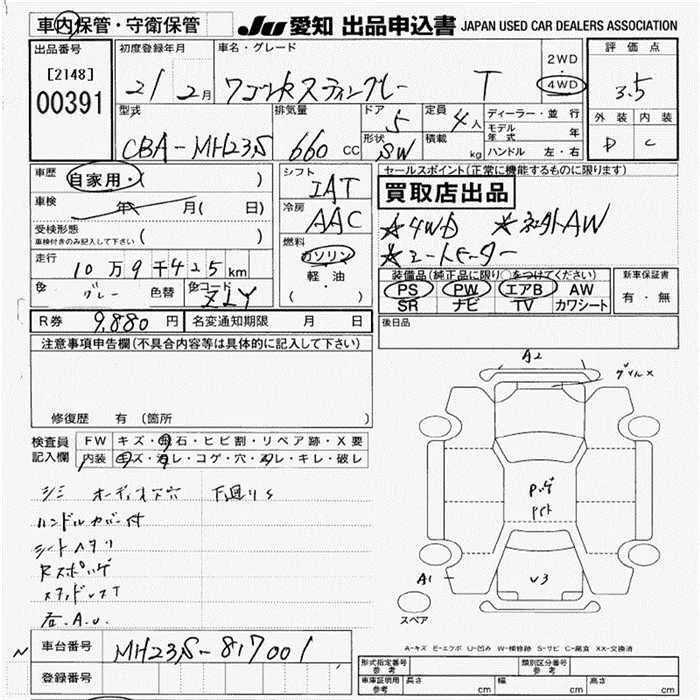 車内保管・守衛保管
JU 愛知 出品申込書 JAPAN USED CAR DEALERS ASSOCIATION
出品番号
[2148]
00391
初度登録年月
21 2月
車名・グレード
ワゴンR スティングレー T
2WD
・
4WD
評価点
3.5
外装 内装
D C
型式
CBA-MH23S
排気量
660 CC
ドア
5
形状
SW
定員
4人
積載
kg
ディーラー・並行
モデル年式 年
ハンドル 左・右
車歴
自家用・( )
車検
年 月( 日)
受検形態
車検付きのみ記入して下さい ( )
走行
10万9千425km
色
グレー
色替
色コード
ZJY
シフト
IAT
冷房
AAC
燃料
ガソリン
・
軽・油
( )
セールスポイント(正常に機能するものに限ります)
買取店出品
☆4WD ☆社外AW
☆シートヒーター
装備品(純正品に限り○をつけてください)
PS PW エアB AW
SR ナビ TV カワシート
新車保証書
有・無
後日品
R券 9,880円
名変通知期限 月 日
注意事項申告欄(不具合内容等は具体的に記入して下さい)
修復歴 有 (箇所
検査員
記入欄
FW キズ・飛石・ヒビ割・リペア跡・X要
内装 キズ・汚レ・コゲ・穴・スレ・キレ・破レ
シミ オーディオ下穴 下廻りS
ハンドルカバー付
シートヘタリ
A2
A1
U3
スペア
A-キズ E-エクボ U-凹み W-補修跡 S-サビ C-腐食 XX-交換済
車台番号
MH23S-817001
登録番号
形式指定番号
参考
類別区分番号
参考
車庫証明用
参考
長さ cm
幅 cm
高さ cm